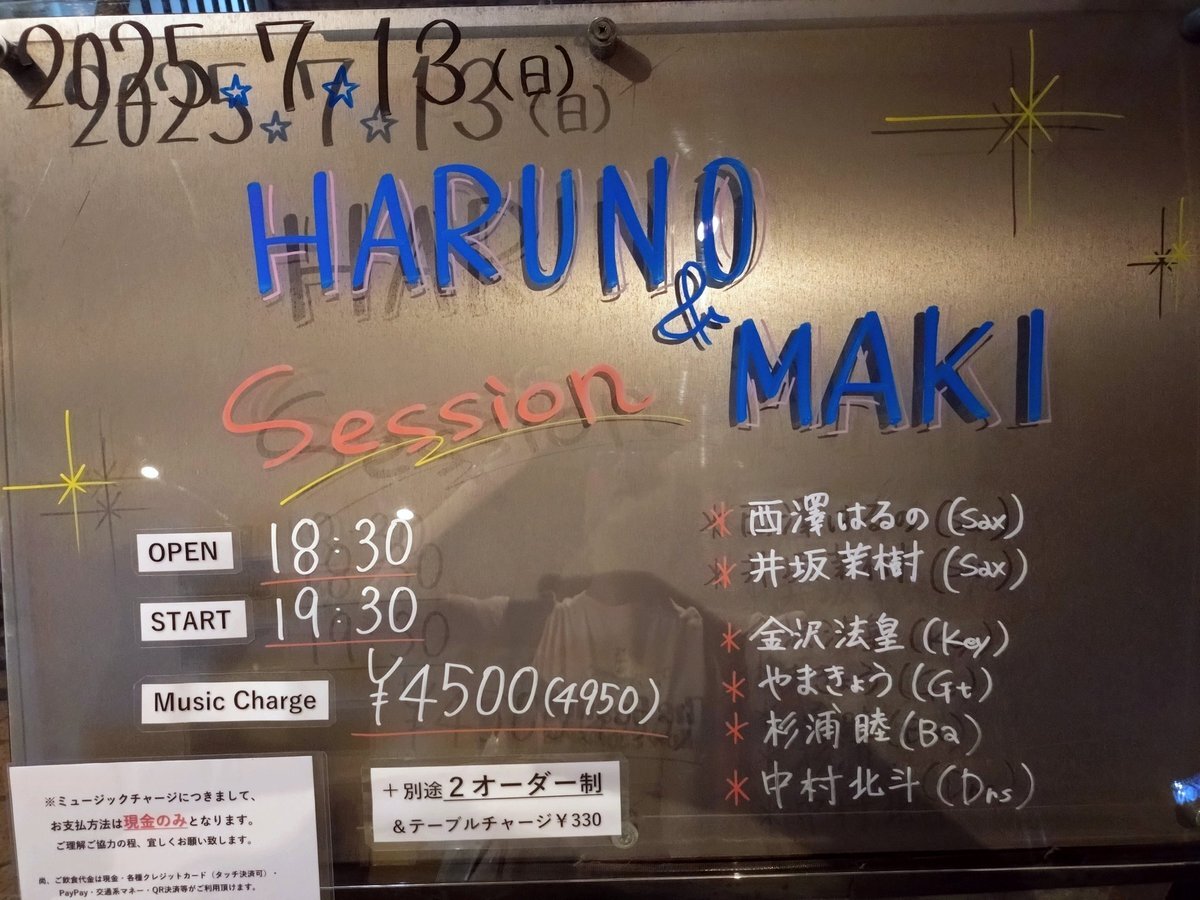 2025.7.13(日)
HARUNO
&
MAKI
Session
OPEN 18:30
START 19:30
Music Charge ¥4500(4950)
＋別途2オーダー制
＆テーブルチャージ￥330
＊西澤はるの(Sax)
＊井坂茉樹(Sax)
＊金沢法皇(Key)
＊やまきょう(Gt)
＊杉浦睦(Ba)
＊中村北斗(Drs)
※ミュージックチャージにつきまして、
お支払方法は現金のみとなります。
ご理解ご協力の程、宜しくお願い致します。
尚、ご飲食代金は現金・各種クレジットカード（タッチ決済可）・
PayPay・交通系マネー・QR決済等がご利用頂けます。